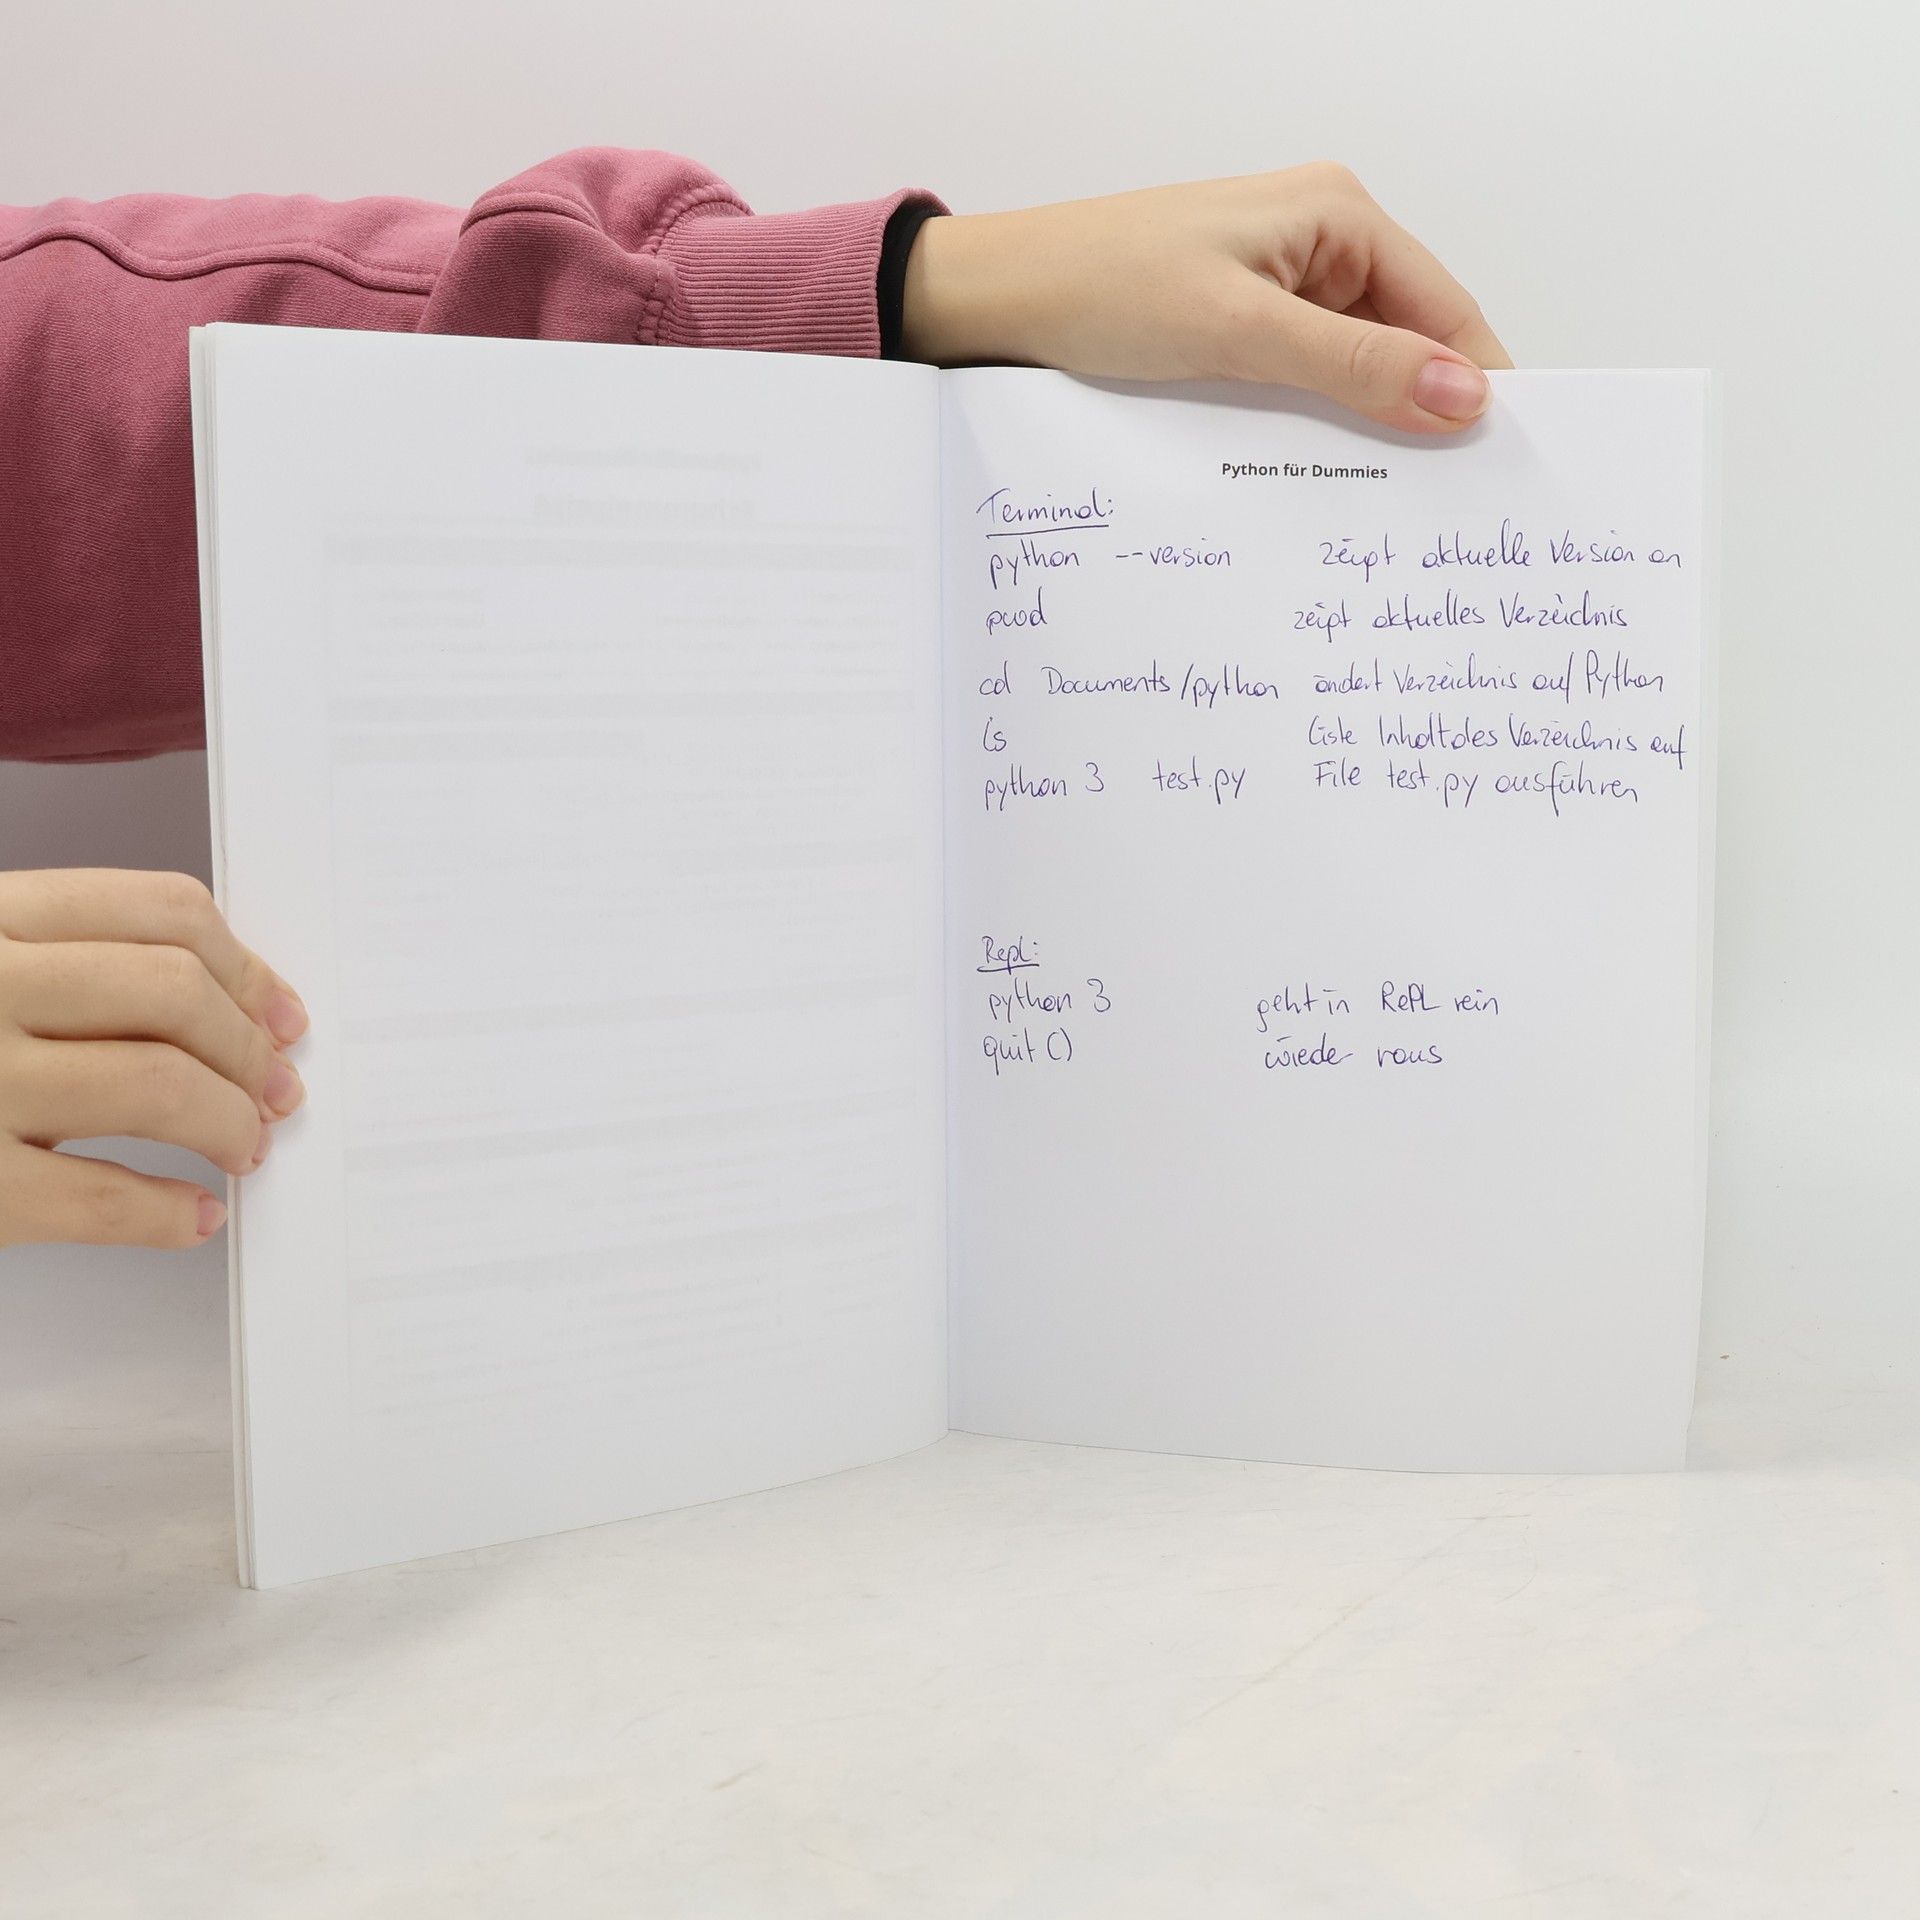 Python für Dummies
Terminal:
python --version zeigt aktuelle Version an
pwd zeigt aktuelles Verzeichnis
cd Documents/python ändert Verzeichnis auf Python
ls liste Inhalt des Verzeichnis auf
python 3 test.py File test.py ausführen
Repl:
python 3 geht in RePL rein
quit () wieder raus